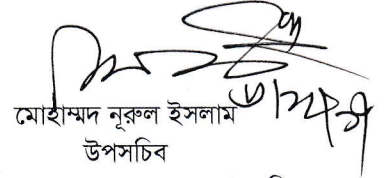 মোহাম্মদ নূরুল ইসলাম
উপসচিব